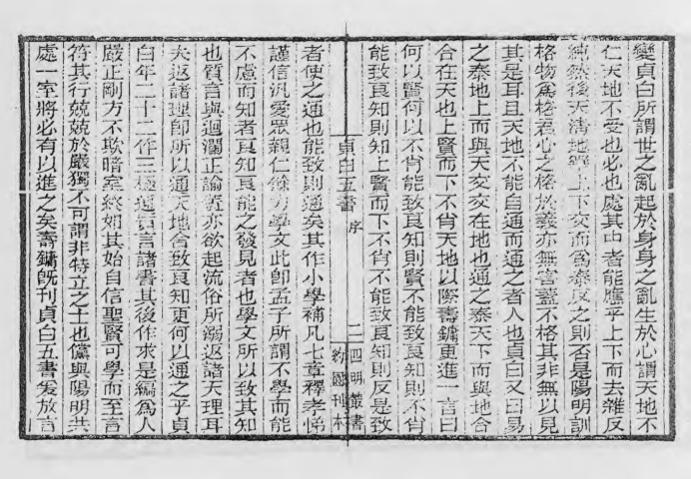 變貞白所謂世之亂起於身身之亂生於心謂天地不
仁天地不受也必也處其中者能應乎上下而去雜反
純然後天清地寧上下交而為泰反之則否是陽明訓
格物為格吾心之格於義亦無害蓋不格其非無以見
其是耳且天地不能自通而通之者人也貞白又曰易
之泰地上而與天交交在地也通之泰天下而與地合
合在天也上賢而下不肖天地以際壽鏞更進一言曰
何以賢何以不肖能致良知則賢不能致良知則不肖
能致良知則知上賢而下不肖不能致良知則反是致
貞白五書 序
二 四明叢書
約園刊本
者使之通也能致則通矣其作小學補凡七章釋孝悌
謹信汎愛眾親仁餘力學文此卽孟子所謂不學而能
不慮而知者良知良能之發見者也學文所以致其知
也質言與迴瀾正論質亦欲起流俗所溺返諸天理耳
夫返諸理卽所以通天地舍致良知更何以通之乎貞
白年二十二作三極通質言諸書其後作求是編為人
嚴正剛方不欺暗室終如其始自信聖賢可學而至言
符其行兢兢於嚴獨不可謂非特立之士也儻與陽明共
處一室將必有以進之矣壽鏞旣刊貞白五書爰放言